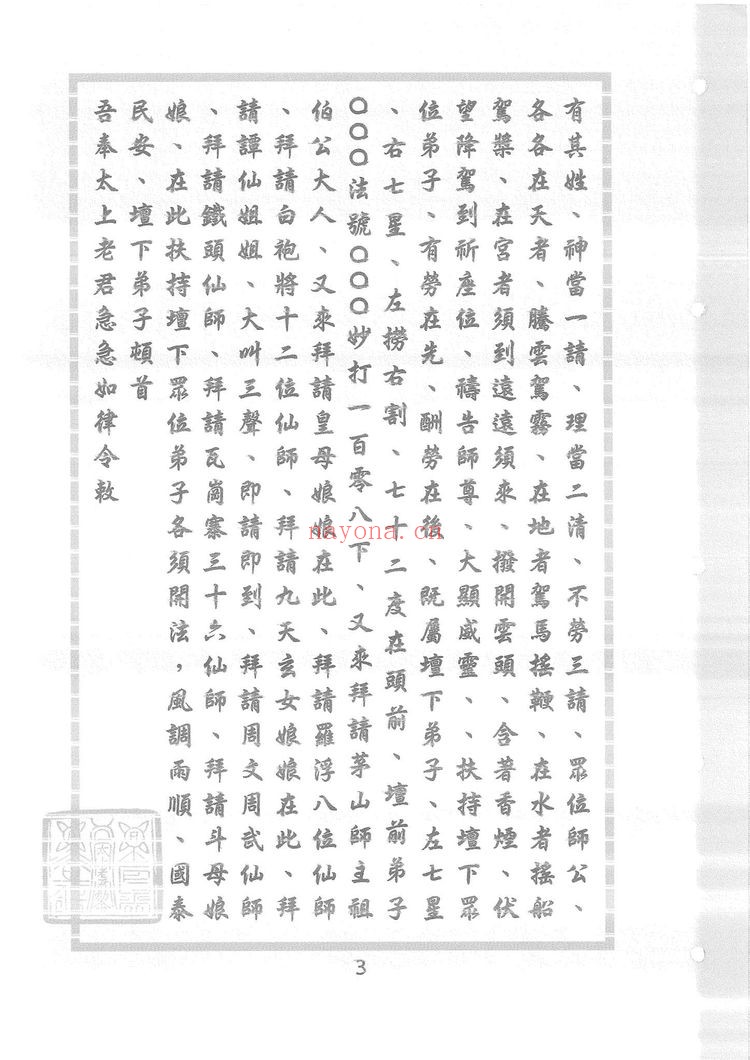 有其姓、神當一請、理當二清、不勞三請、眾位師公、
各各在天者、騰雲駕霧、在地者駕馬搖鞭、在水者搖船
駕槳、在宮者須到遠遠須來、撥開雲頭、含著香煙、伏
望降駕到祈座位、禱告師尊、大顯威靈、、扶持壇下眾
位弟子、有勞在先、酬勞在後、既屬壇下弟子、左七星
、右七星、左撈右割、七十二度在頭前、壇前弟子
○○○法號○○○妙打一百零八下、又來拜請茅山師主祖
伯公大人、又來拜請皇母娘娘在此、拜請羅浮八位仙師
、拜請白袍將十二位仙師、拜請九天玄女娘娘在此、拜
請譚仙姐姐、大叫三聲、即請即到、拜請周文周武仙師
、拜請鐵頭仙師、拜請瓦崗寨三十六仙師、拜請斗母娘
娘、在此扶持壇下眾位弟子各須開法，風調雨順、國泰
民安、壇下弟子頓首
吾奉太上老君急急如律令敕
nayona.cn
3